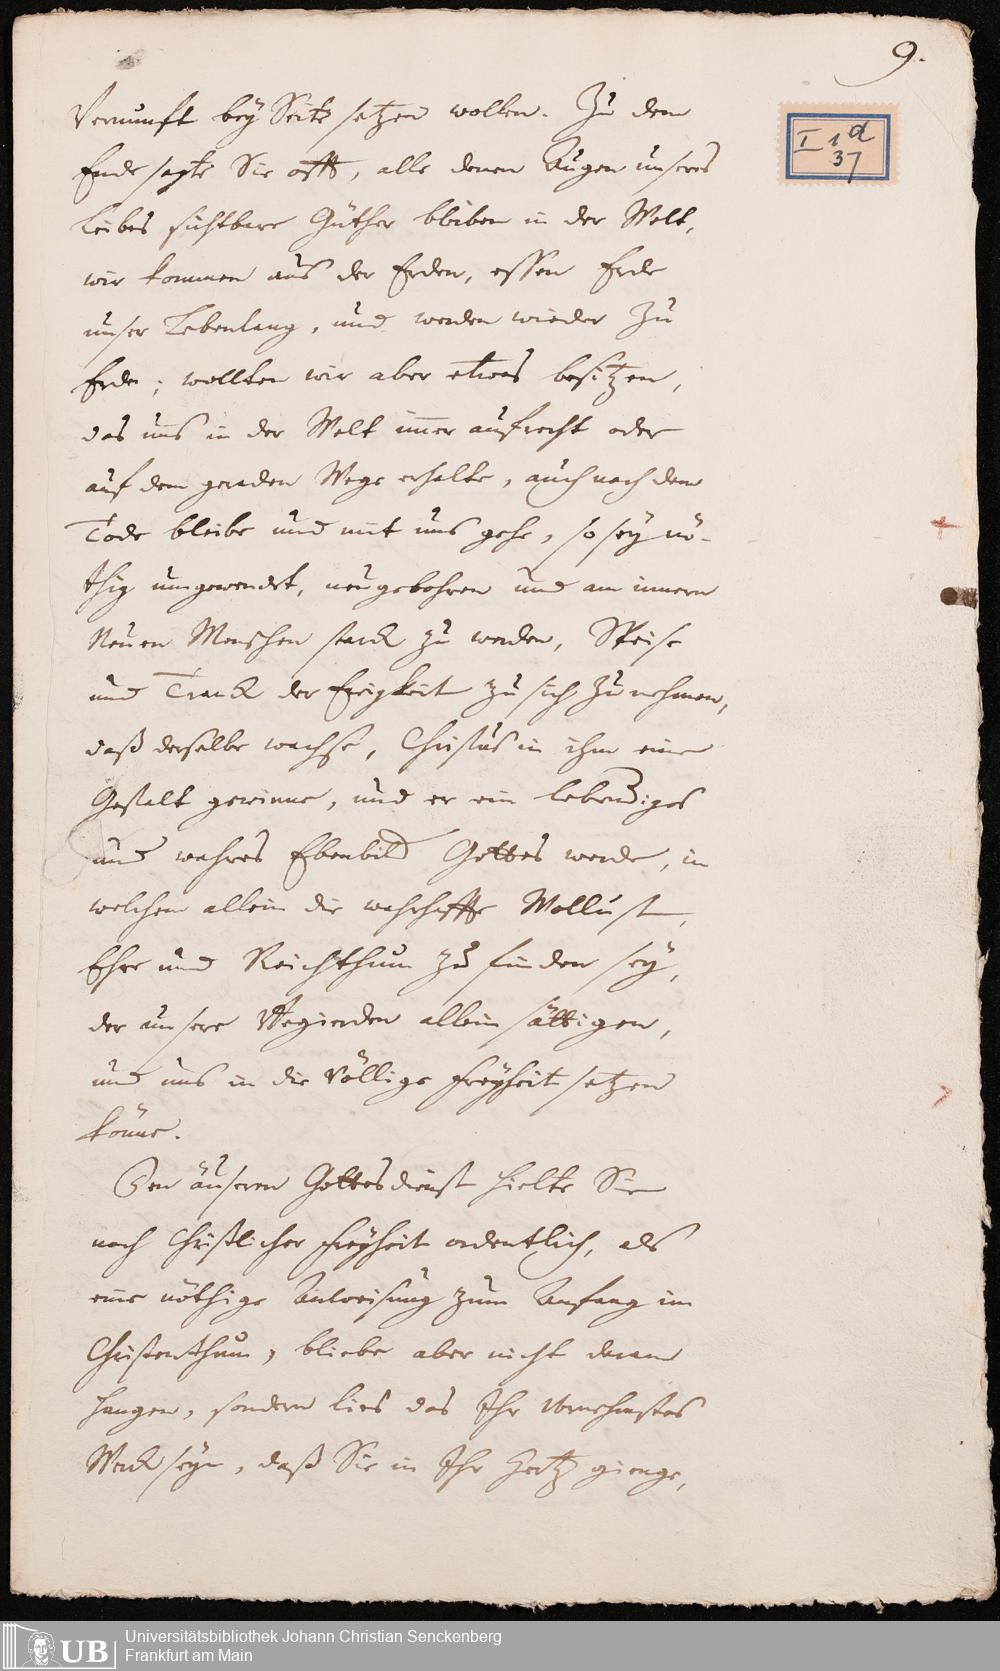 9.
I 1 d
37
Vernunft bey Seite setzen wollen. Zu dem
Ende sagte Sie offt, alle denen Augen unseres
Leibes sichtbare Güther bliben in der Welt,
wir kommen aus der Erden, essen Erde
unser Lebenlang, und werden wieder Zu
Erde; wollten wir aber etwas besitzen,
das uns in der Welt immer aufrecht oder
auf dem geraden Wege erhalte, auch nach dem
Tode bleibe und mit uns gehe, so sey nö-
thig umgewendet, neugebohren und am innern
Neuen Menschen starck zu werden, Speise
und Tranck der Ewigkeit zu sich zu nehmen,
daß derselbe wachse, Christus in ihm eine
Gestalt gewinne, und er ein lebendiges
und wahres Ebenbild Gottes werde, in
welchem allein die wahrhaffte Wollust,
Ehre und Reichthum zu finden sey,
der unsere Begierden allein sättigen,
und uns in die völlige Freyheit setzen
könne.
Den äuseren Gottesdienst hielte Sie
nach Christlicher Freyheit ordentlich, als
eine nöthige Anweisung zum Anfang im
Christenthum, bliebe aber nicht daran
hangen, sondern lies das Ihr vornehmstes
Werck seyn, daß Sie in Ihr Hertz gienge,
UB
Universitätsbibliothek Johann Christian Senckenberg
Frankfurt am Main